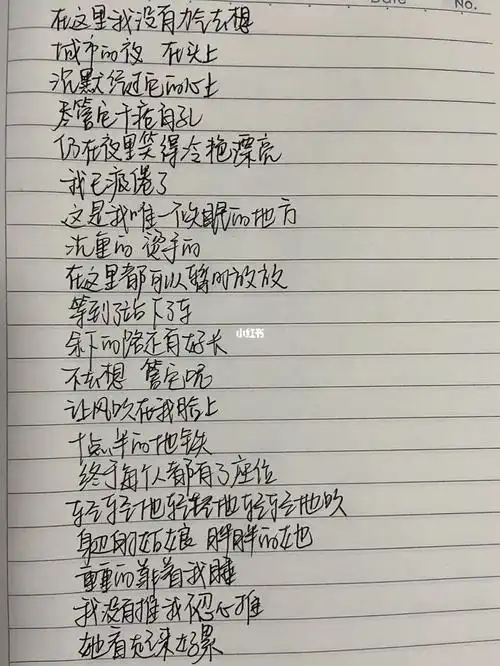 Date
No.
在这里我没有力气去想
城市的夜 在头上
沉默经过它的心上
尽管它千疮百孔
仍在夜里笑得冷艳漂亮
我已疲倦了
这是我唯一个失眠的地方
沉重的 烫手的
在这里都可以暂时放放
等到了站下了车
余下的路还有好长
不去想 管它呢
让风吹在我脸上
十点半的地铁
终于每个人都有了座位
轻轻地轻轻地轻轻地吹
身边的姑娘 胖胖的她
重重的靠着我睡
我没有推 我不忍心推
她看起来好累
小红书